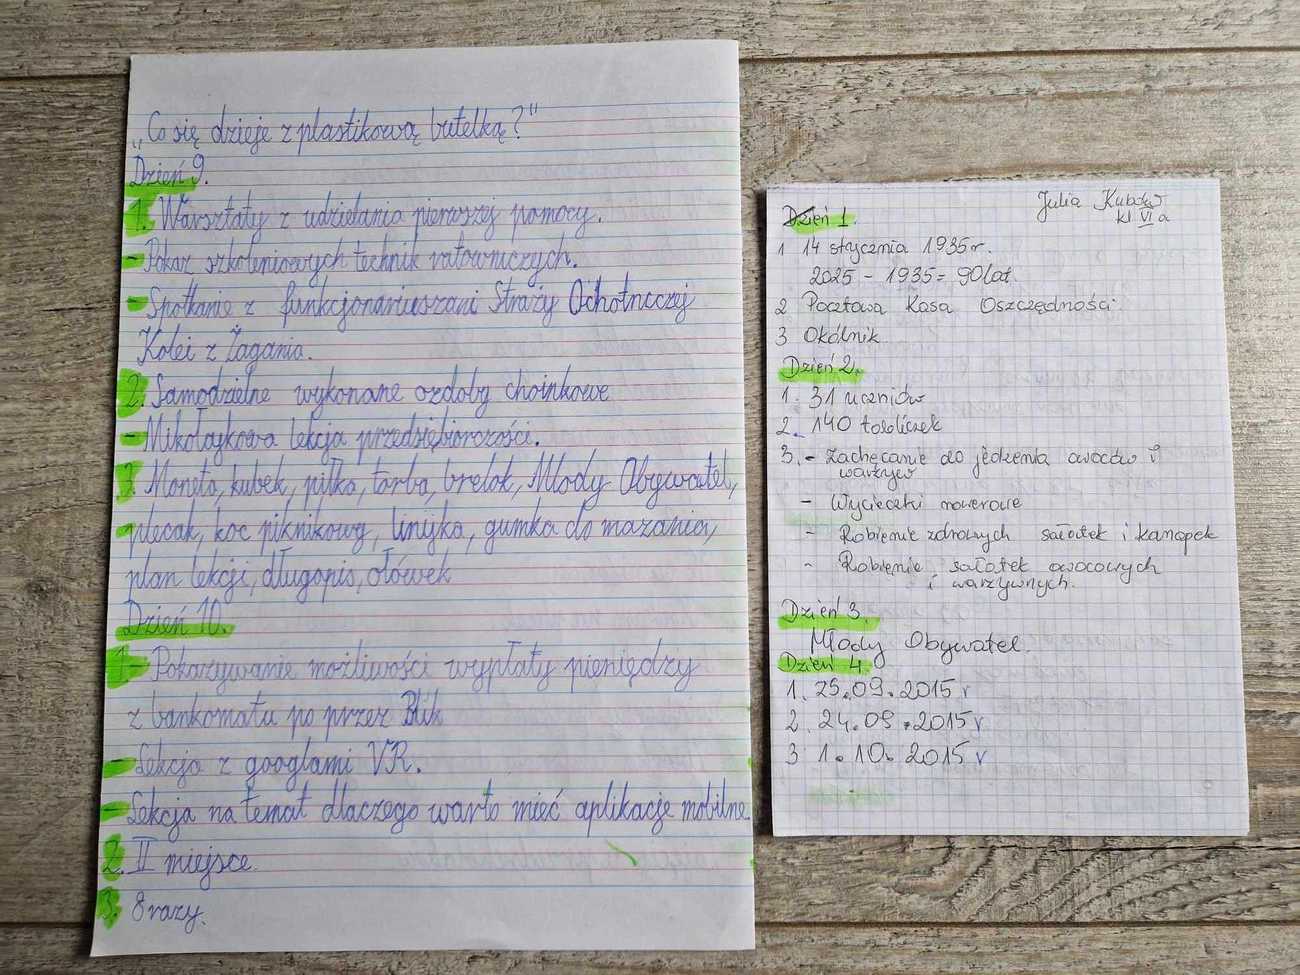 „Co się dzieje z plastikową butelką?"
Dzień 9.
1. Warsztaty z udzielania pierwszej pomocy.
- Pokaz szkoleniowych technik ratowniczych.
- Spotkanie z funkcjonariuszami Straży Ochotnczej
Kolei z Żagania.
2. Samodzielne wykonane ozdoby choinkowe
- Mikołajkowa lekcja przedsiębiorczości.
3. Moneta, kubek, piłka, torba, brelok, Młody Obywatel,
plecak, koc piknikowy, linijka, gumka do mazania,
plan lekcji, długopis, ołówek
Dzień 10.
1- Pokazywanie możliwości wypłaty pieniędzy
z bankomatu po przez Blik
- Lekcja z googlami VR.
- Lekcja na temat dlaczego warto mieć aplikacje mobilne
2. II miejsce
3. 8 razy.
Julia
kl VI a
Dzień 1.
1 14 stycznia 1935r.
2025 - 1935= 90lat.
2 Pocztowa Kasa Oszczędności.
3 Okólnik
Dzień 2.
1. 31 uczniów
2. 140 tabliczek
3. - Zachęcanie do jedzenia owoców i
warzyw
- Wycieczki rowerowe
- Robienie zdrowych sałatek i kanapek
- Robienie sałatek owocowych
i warzywnych.
Dzień 3.
Młody Obywatel.
Dzień 4.
1. 25.09.2015 r
2. 24.09.2015 r
3 1.10.2015 r